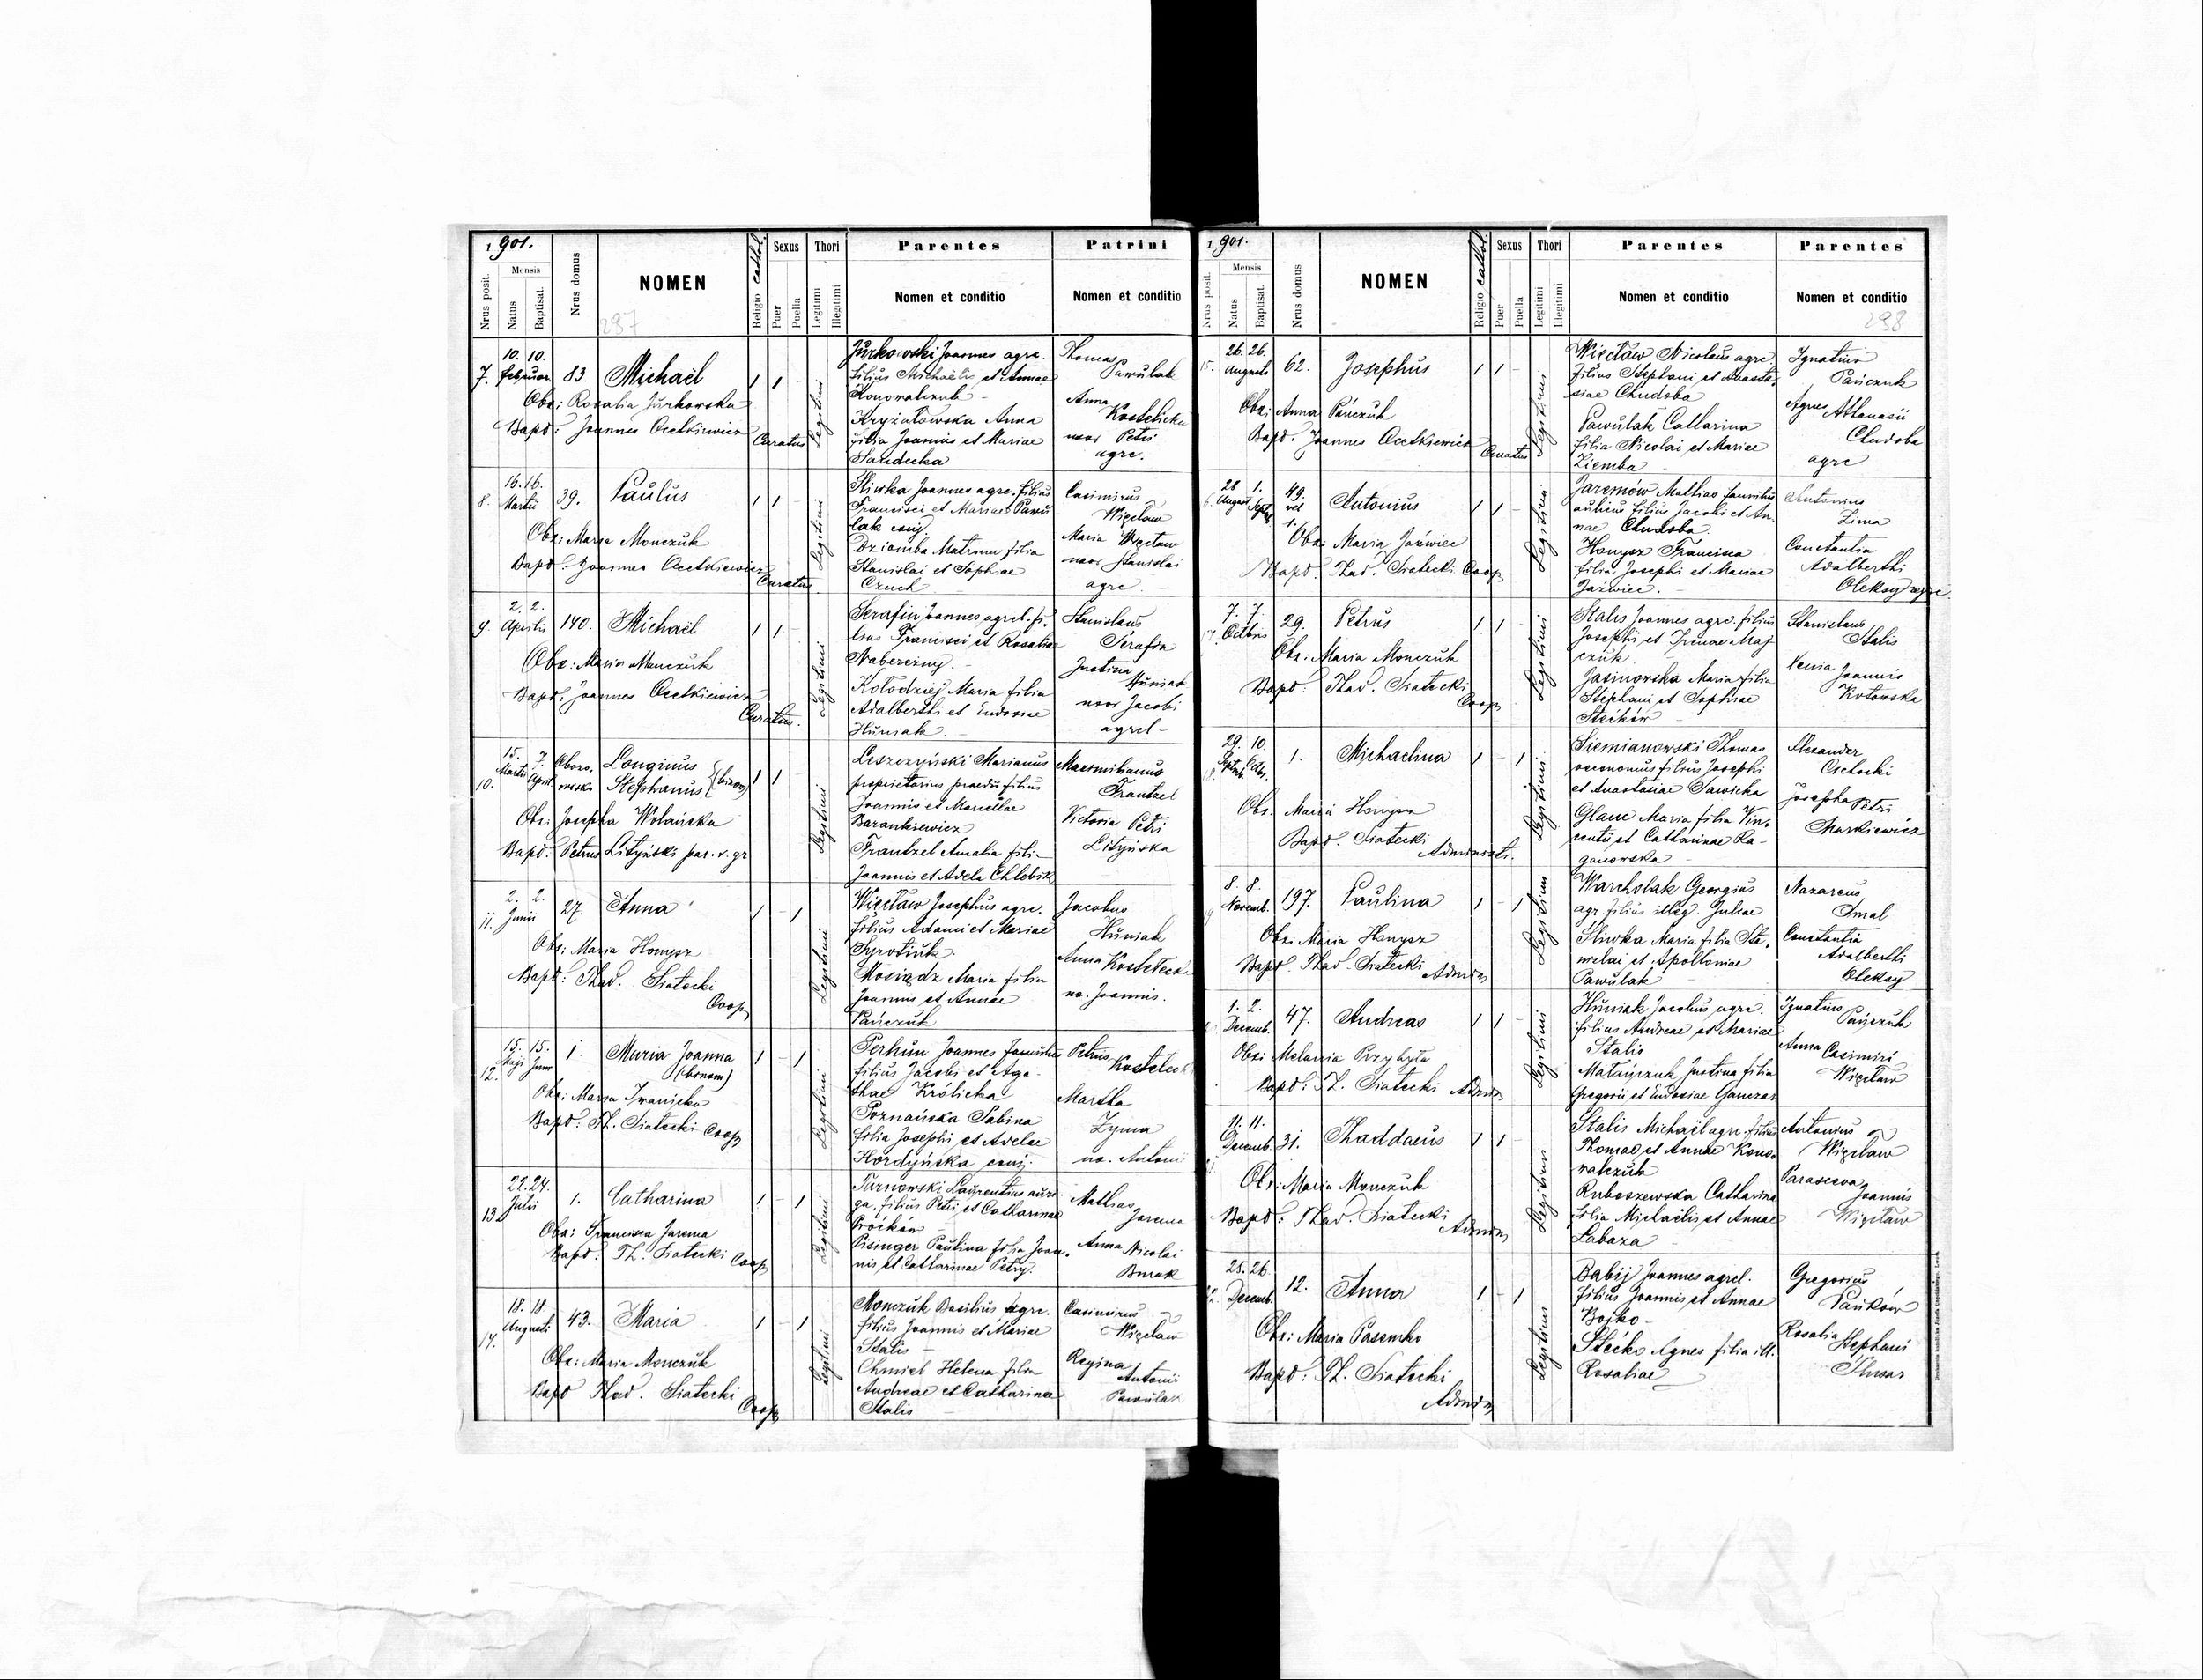 1901.
Nrus posit.
Mensis
Natus
Baptisat.
Nrus domus
NOMEN
297
Religio cathol.
Sexus
Puer
Puella
Thori
Legitimi
Illegitimi
Parentes
Nomen et conditio
Patrini
Nomen et conditio
7.
10. 10.
Februar.
83.
Michaël
1 1 -
Legitimi
Obs: Rosalia Jurkowska
Bapt: Joannes Ocetkiewicz
Curatus
Jurkowski Joannes agric.
filius Michaëlis et Annae
Konowalczuk -
Kryżałowska Anna
filia Joannis et Mariae
Sandecka
Thomas
Pawulak
Anna
Kostelicka
uxor Petri
agric.
8.
16. 16.
Martii
39.
Paulus
1 1 -
Legitimi
Obs: Maria Monczuk
Bapt: Joannes Ocetkiewicz
Curatus
Śliwka Joannes agric. filius
Francisci et Mariae Pawu
lak conj.
Dziomba Matrona filia
Stanislai et Sophiae
Czuch
Casimirus
Więcław
Maria Więcław
uxor Stanislai
agric.
9.
2. 2.
Aprilis
140.
Michaël
1 1 -
Legitimi
Obs: Maria Monczuk
Bapt: Joannes Ocetkiewicz
Curatus.
Serafin Joannes agric. fi-
lius Francisci et Rosaliae
Nabereżny. -
Kołodziej Maria filia
Adalberthi et Eudoxiae
Huniak. -
Stanislaus
Serafin
Justina
Huniak
uxor Jacobi
agric -
10.
15. 7.
Martii April.
Longinus
Stephanus (binom)
1 1 -
Legitimi
Obs: Josepha Wolańska
Bapt: Petrus Lityński par. r. gr
Leszczyński Marianus
proprietarius praedii filius
Joannis et Marcellae
Barankiewicz
Frantzel Amalia fili-
Joannis et Adela Chlebik
Maximilianus
Frantzel
Victoria Petri
Lityńska
11.
2. 2.
Junii
27.
Anna
1 - 1
Legitimi
Obs: Maria Honysz
Bapt: Thad. Siatecki
Coop
Więcław Josephus agric.
filius Adami et Mariae
Syrotiuk.
Mosiądz Maria filia
Joannis et Annae
Pańczuk
Jacobus
Huniak
Anna Kostelecka
ux. Joannis.
12.
15. 15.
Maji Junii
1.
Maria Joanna
(binom)
1 - 1
Legitimi
Obs: Maria Iwanicka
Bapt: Th. Siatecki Coop
Perhun Joannes famulus
filius Jacobi et Aga-
thae Królicka
Poznańska Sabina
filia Josephi et Adelae
Hordyńska conj.
Petrus
Kostelecki
Martha
Zyma
ux. Antoni
13.
22. 24.
Julii
1.
Catharina
1 - 1
Legitimi
Obs: Francisca Jarema
Bapt. Th. Siatecki Coop
Turnowski Laurentius auri-
ga, filius Petri et Catharinae
Pisinger Paulina filia Joan-
nis et Catharinae Petry.
Mathias
Jarema
Anna Nicolai
Burak
14.
18. 18.
Augusti
43.
Maria
1 - 1
Legitimi
Obs: Maria Monczuk
Bapt Thad. Siatecki
Coop
Monczuk Basilius agric.
filius Joannis et Mariae
Stalis -
Chmiel Helena filia
Andreae et Catharinae
Stalis
Casimirus
Więcław
Regina
Antonii
Pawulak
1901.
Nrus posit.
Mensis
Natus
Baptisat.
Nrus domus
NOMEN
Religio cathol.
Sexus
Puer
Puella
Thori
Legitimi
Illegitimi
Parentes
Nomen et conditio
Parentes
Nomen et conditio
298
15.
26. 26.
Augusti
62.
Josephus
1 1 -
Legitimi
Obs: Anna Pańczuk
Bapt. Joannes Ocetkiewicz
Curatus
Więcław Nicolaus agric
filius Stephani et Anasta-
siae Chudoba
Pawulak Catharina
filia Nicolai et Mariae
Ziemba
Ignatius
Pańczuk
Agnes Athanasii
Chudoba
agric
28 1.
August Septbr
49.
vel
1.
Antonius
1 1 -
Legitimi
Obs. Maria Jaźwiec
Bapt. Thad. Siatecki Coop
Jaremów Mathias famulus
aulicus filius Jacobi et An-
nae Chudoba
Honysz Francisca
filia Josephi et Mariae
Jaźwiec.
Antonius
Zima
Constantia
Adalberthi
Oleksy agric.
17.
7. 7.
Octbris
29.
Petrus
1 1 -
Legitimi
Obs: Maria Monczuk
Bapt: Thad. Siatecki
Coop
Stalis Joannes agric. filius
Josephi et Irenae Maj-
czuk
Jasinowska Maria filia
Stephani et Sophiae
Stećków
Stanislaus
Stalis
Xenia Joannis
Kotowska
18.
29. 10.
Septemb. Octbr.
1.
Michaelina
1 - 1
Legitimi
Obs. Maria Honysz
Bapt. Siatecki
Administr.
Siemianowski Thomas
oeconomus filius Josephi
et Anastasiae Sawicka
Glanc Maria filia Vin-
centii et Catharinae Ra-
ganowska
Alexander
Cichocki
Josepha Petri
Markiewicz
19.
8. 8.
Novemb.
197.
Paulina
1 - 1
Legitimi
Obs: Maria Honysz
Bapt. Thad. Siatecki Admin
Warcholak Georgius
agr. filius illeg. Juliae
Śliwka Maria filia Sta-
nislai et Apolloniae
Pawulak
Nazareus
Smal
Constantia
Adalberthi
Oleksy
1. 2.
Decemb.
47.
Andreas
1 1 -
Legitimi
Obs: Melania Przybyła
Bapt: Th. Siatecki Admin
Huniak Jacobus agric.
filius Andreae et Mariae
Stalis
Matańczuk Justina filia
Gregorii et Eudoxiae Ganczar
Ignatius
Pańczuk
Anna Casimiri
Więcław
11. 11.
Decemb.
31.
Thaddaeus
1 1 -
Legitimi
Obs: Maria Monczuk
Bapt: Thad. Siatecki
Admin
Stalis Michaël agric. filius
Thomae et Annae Kono-
walczuk
Ruboszewska Catharina
filia Michaëlis et Annae
Łabaza -
Antonius
Więcław
Parasceva
Joannis
Więcław
25. 26.
Decemb.
12.
Anna
1 - 1
Legitimi
Obs: Maria Pasemko
Bapt: Th. Siatecki
Admin
Babij Joannes agric.
filius Joannis et Annae
Bojko -
Stećko Agnes filia ill.
Rosaliae
Gregorius
Pańków
Rosalia Stephani